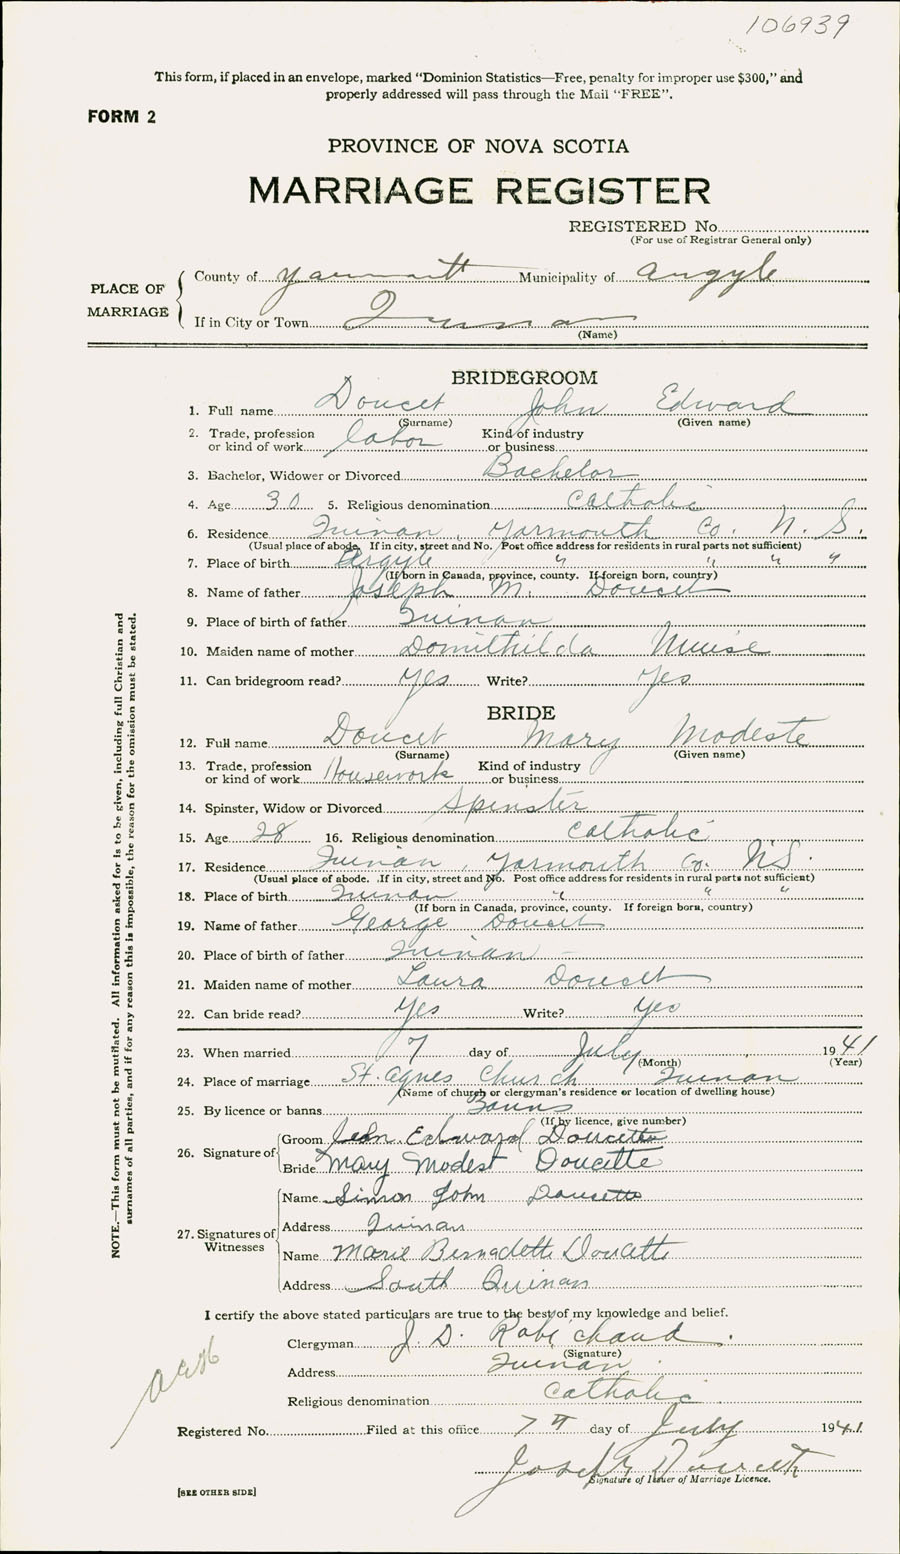 106939
This form, if placed in an envelope, marked "Dominion Statistics—Free, penalty for improper use $300," and
properly addressed will pass through the Mail "FREE".
FORM 2
PROVINCE OF NOVA SCOTIA
MARRIAGE REGISTER
REGISTERED No.
(For use of Registrar General only)
PLACE OF MARRIAGE
County of Yarmouth Municipality of Argyle
If in City or Town Quinan
(Name)
BRIDEGROOM
1. Full name Doucet John Edward
(Surname) (Given name)
2. Trade, profession or kind of work labor Kind of industry or business
3. Bachelor, Widower or Divorced Bachelor
4. Age 30 5. Religious denomination Catholic
6. Residence Quinan, Yarmouth Co. N. S.
(Usual place of abode. If in city, street and No. Post office address for residents in rural parts not sufficient)
7. Place of birth Argyle " " " "
(If born in Canada, province, county. If foreign born, country)
8. Name of father Joseph M. Doucet
9. Place of birth of father Quinan
10. Maiden name of mother Domithilda Muise
11. Can bridegroom read? Yes Write? Yes
BRIDE
12. Full name Doucet Mary Modeste
(Surname) (Given name)
13. Trade, profession or kind of work Housework Kind of industry or business
14. Spinster, Widow or Divorced Spinster
15. Age 28 16. Religious denomination Catholic
17. Residence Quinan, Yarmouth Co. N.S.
(Usual place of abode. If in city, street and No. Post office address for residents in rural parts not sufficient)
18. Place of birth Quinan " " "
(If born in Canada, province, county. If foreign born, country)
19. Name of father George Doucet
20. Place of birth of father Quinan
21. Maiden name of mother Laura Doucet
22. Can bride read? Yes Write? Yes
23. When married 7 day of July 1941
(Month) (Year)
24. Place of marriage St. Agnes Church Quinan
(Name of church or clergyman's residence or location of dwelling house)
25. By licence or banns Banns
(If by licence, give number)
26. Signature of
Groom John Edward Doucette
Bride Mary Modest Doucette
27. Signatures of Witnesses
Name Simon John Doucette
Address Quinan
Name Marie Bernadette Doucette
Address South Quinan
I certify the above stated particulars are true to the best of my knowledge and belief.
Clergyman J. D. Robichaud.
(Signature)
Address Quinan.
Religious denomination Catholic
Registered No. Filed at this office 7th day of July 1941.
Joseph Doucett
Signature of Issuer of Marriage Licence.
[SEE OTHER SIDE]
NOTE.—This form must not be mutilated. All information asked for is to be given, including full Christian and
surnames of all parties, and if for any reason this is impossible, the reason for the omission must be stated.